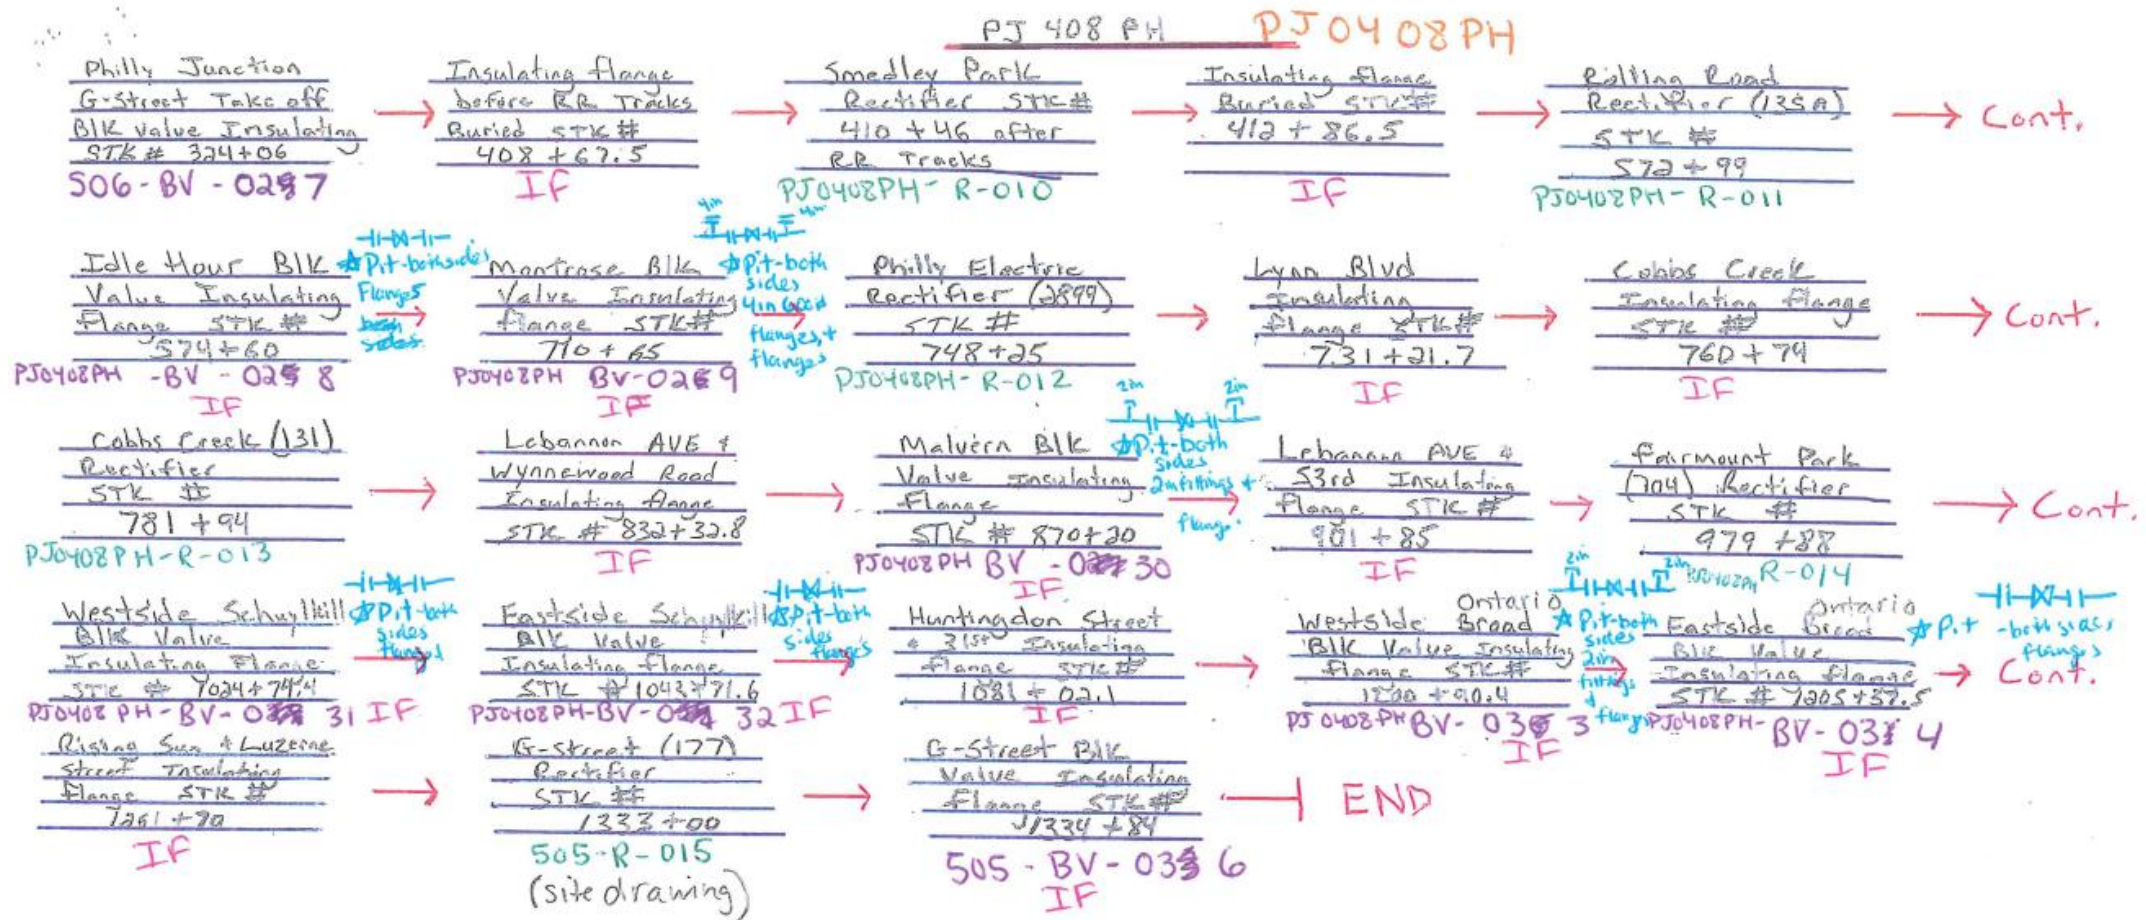 PJ 408 PH PJ0408PH
Philly Junction
G-Street Take off
Blk Valve Insulating
STK # 324+06
506-BV-0227
Insulating flange
before RR Tracks
Buried STK #
408 + 67.5
IF
Smedley Park
Rectifier STK #
410 + 46 after
RR Tracks
PJ0408PH- R-010
Insulating flange
Buried STK#
412 + 86.5
IF
Rolling Road
Rectifier (135A)
STK #
572 + 99
PJ0408PH- R-011
Cont.
Idle Hour Blk
Valve Insulating
flange STK #
574+60
PJ0408PH -BV - 02 8
IF
Pit-both sides
Flanges
both
sides
Montrose Blk
Valve Insulating
flange STK#
710 + 65
PJ0408PH BV-02 9
IF
4in 4in
Pit-both
sides
4in
flanges, +
flanges
Philly Electric
Rectifier (2899)
STK #
748+25
PJ0408PH- R-012
Lynn Blvd
Insulating
flange STK#
731+21.7
IF
Cobbs Creek
Insulating flange
STK #
760 + 74
IF
Cont.
Cobbs Creek (131)
Rectifier
STK #
781 + 94
PJ0408PH-R-013
Lebannon AVE &
Wynnewood Road
Insulating flange
STK # 832+32.8
IF
Malvern Blk
Valve Insulating
Flange
STK # 870+20
PJ0408PH BV - 0 30
IF
2in 2in
Pit-both
sides
2in fittings +
flange
Lebannon AVE &
53rd Insulating
flange STK #
901 + 85
IF
Fairmount Park
(704) Rectifier
STK #
979 +88
PJ0408PH R-014
Cont.
Westside Schuylkill
Blk Valve
Insulating Flange
STK # 1024+74.4
PJ0408PH-BV-0 31 IF
Pit-both
sides
flanged
Eastside Schuylkill
Blk Valve
Insulating flange
STK # 1043+71.6
PJ0408PH-BV-0 32 IF
Pit-both
sides
flanges
Huntingdon Street
& 21st Insulating
flange STK#
1081 + 02.1
IF
Westside Ontario Broad
Blk Valve Insulating
flange STK#
1200 + 90.4
PJ0408PH BV- 03 3
IF
2in 2in
Pit-both
sides
2in
fittings
+
flanges
Eastside Ontario Broad
Blk Valve
Insulating flange
STK # 1205+37.5
PJ0408PH- BV-03 4
IF
Pit
-both sides
flanges
Cont.
Rising Sun & Luzerne
Street Insulating
Flange STK #
1261 + 90
IF
G-Street (177)
Rectifier
STK #
1333+00
505-R-015
(site drawing)
G-Street Blk
Valve Insulating
Flange STK #
1334 + 84
505-BV-03 6
IF
END